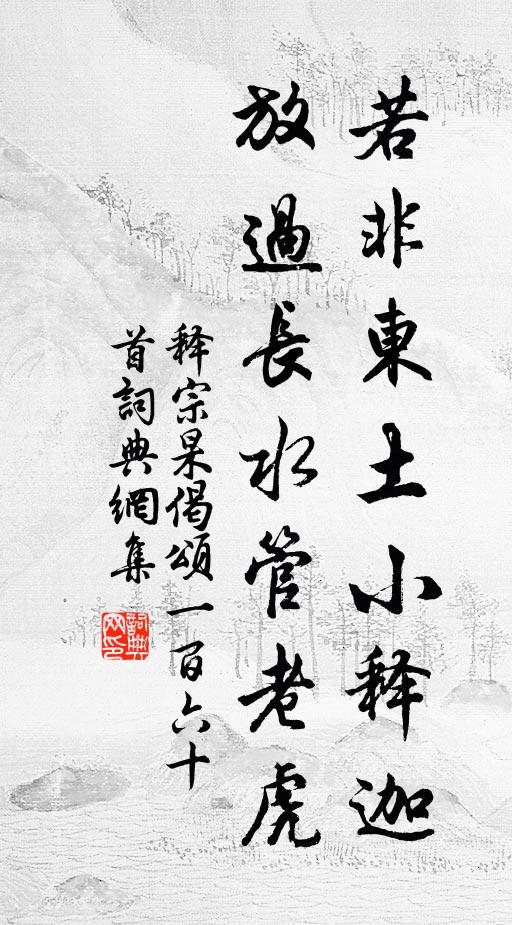 若非東土小释迦
放過長水管老虎
释宗杲偈頌一百六十
首詞典網集
詞典网印